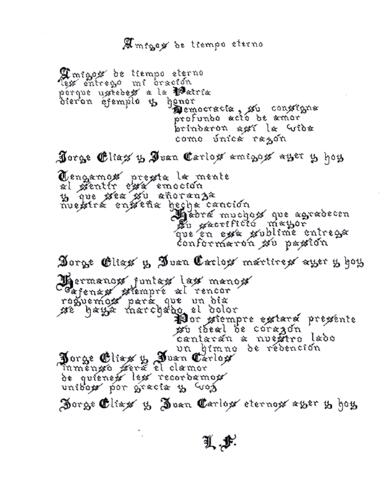 Amigos de tiempo eterno
Amigos de tiempo eterno
les entrego mi oración
porque ustedes a la Patria
dieron ejemplo y honor
Democracia, su consigna
profundo acto de amor
brindaron así la vida
como única razón
Jorge Elías y Juan Carlos amigos ayer y hoy
Tengamos presta la mente
al sentir esa emoción
y que sea su añoranza
nuestra enseña hecha canción
Habrá muchos que agradecen
su sacrificio mayor
que en esa sublime entrega
conformaron su pasión
Jorge Elías y Juan Carlos mártires ayer y hoy
Hermanos juntas las manos
ajenas siempre al rencor
roguemos para que un día
se haya marchado el dolor
Por siempre estará presente
su ideal de corazón
cantarán a nuestro lado
un himno de redención
Jorge Elías y Juan Carlos
inmenso será el clamor
de quienes les recordamos
unidos por gracia y voz
Jorge Elías y Juan Carlos eternos ayer y hoy
L.F.